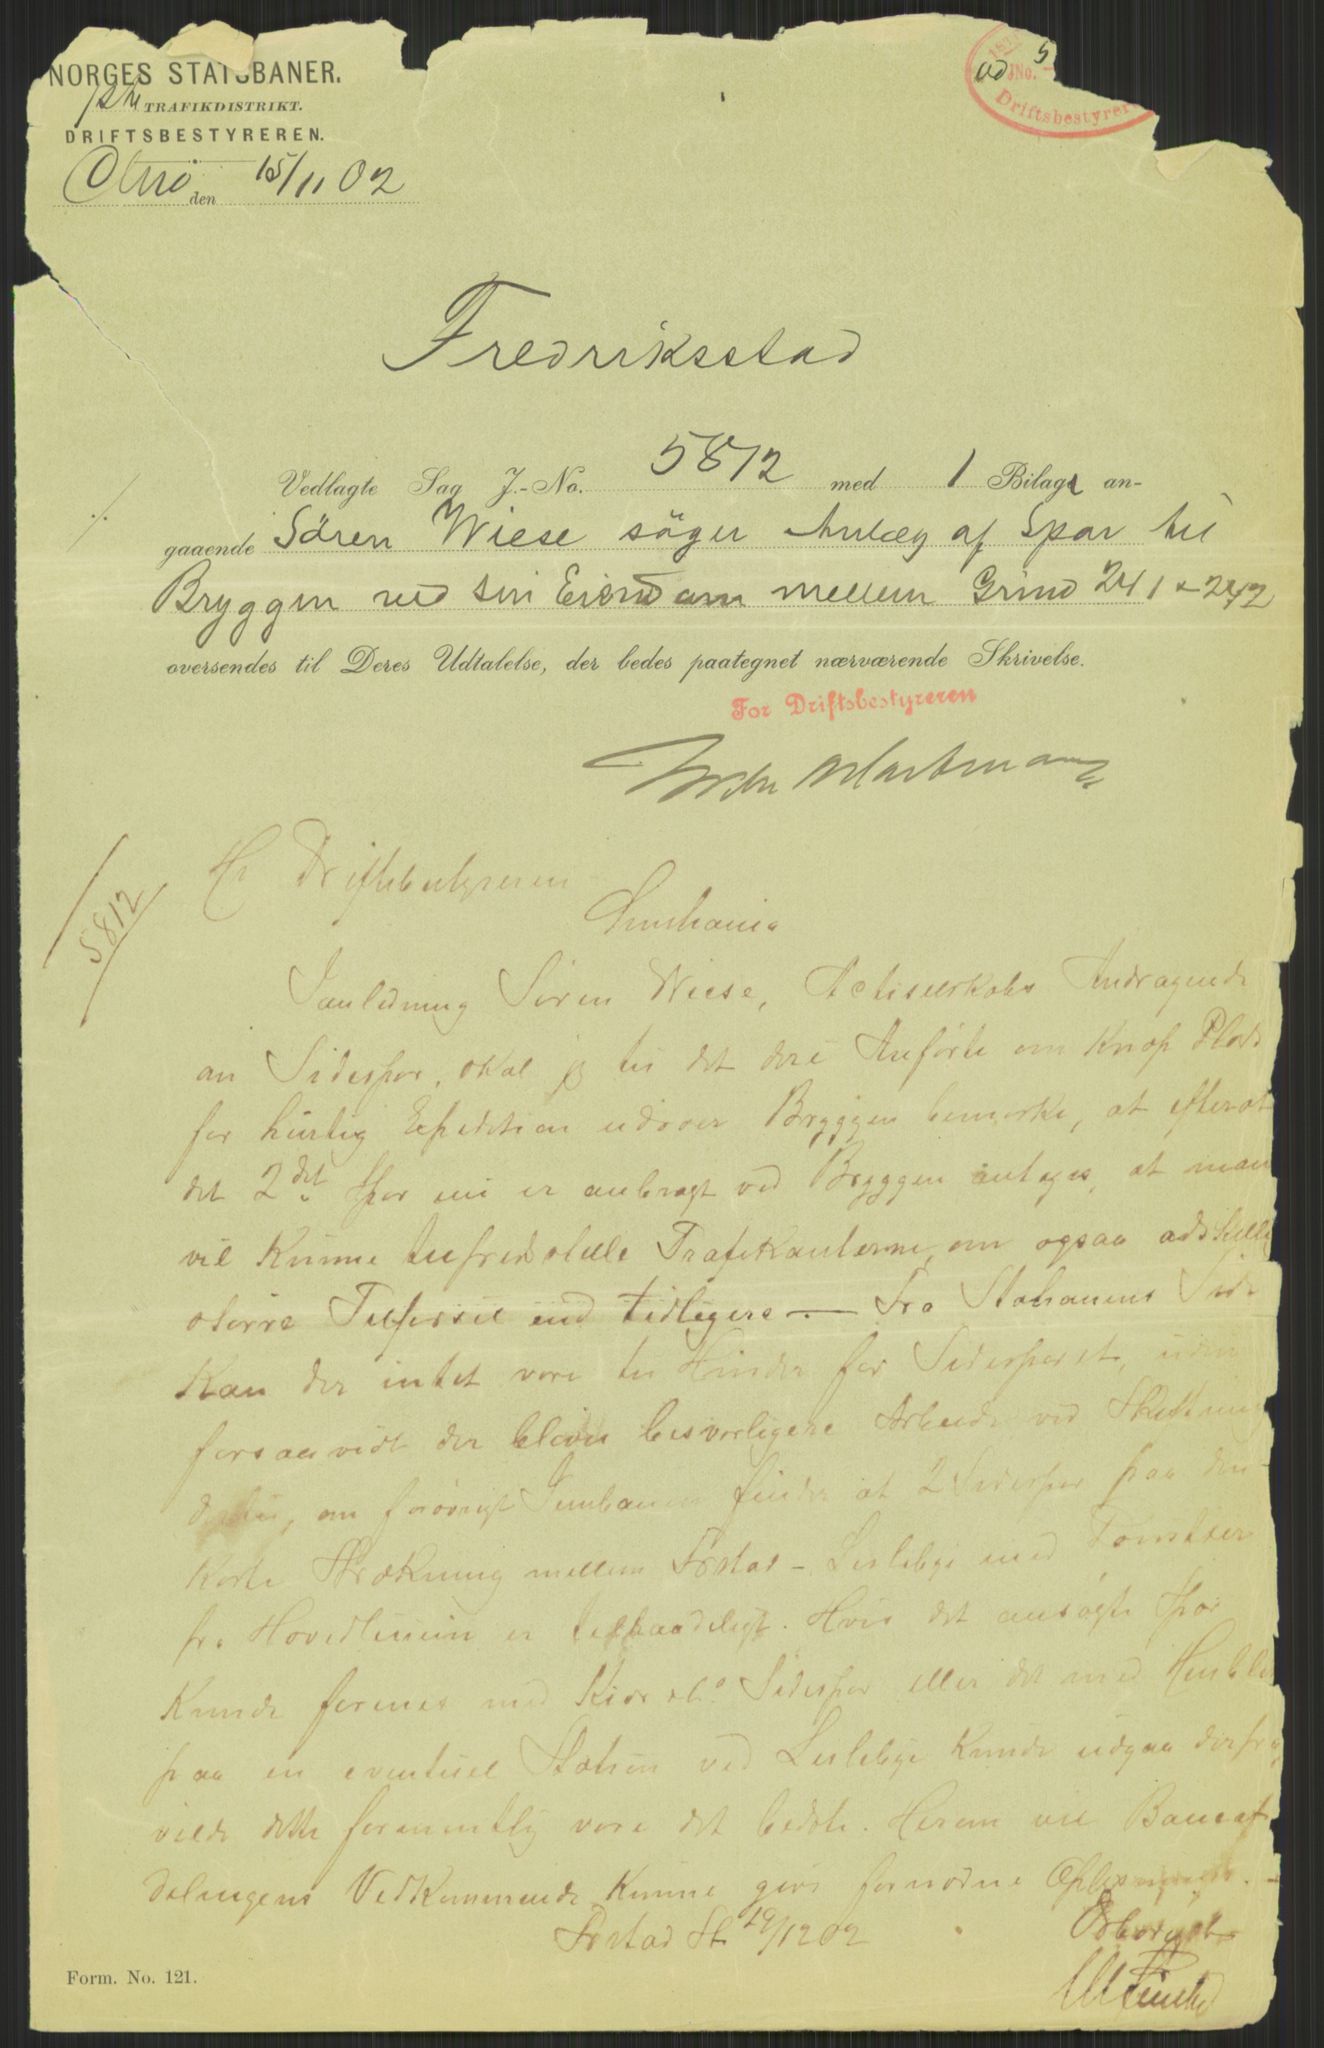 NORGES STATSBANER.
1ste TRAFIKDISTRIKT.
DRIFTSBESTYREREN.
den 15/11 02
JNo.
Driftsbestyrer
Fredriksstad
Vedlagte Sag J.-No. 5812 med 1 Bilag an-
gaaende Sören Wiese söger Anlæg af Spor til
Bryggen ved sin Eiendom mellem Grind 241 & 242
oversendes til Deres Udtalelse, der bedes paategnet nærværende Skrivelse.
For Driftsbestyreren
5812
Hr Driftsbestyreren
Kristiania
I anledning Sören Wiese, Actieselskabs Andragende
om Sidespor, skal jeg til det deri Anförte om Knap Plads
for hurtig Expedition udover Bryggen bemærke, at efterat
det 2det Spor nu er anbragt ved Bryggen antages, at man
vil kunne tilfredsstille Trafikanterne, om ogsaa adskillig
större Tilförsel end tidligere — Fra Stationens Side
kan der intet være til Hinder for Sidesporet, uden
forsaavidt der bliver besværligere Arbeide ved Skiftning
dertil, om forövrigt Jernbanen finder at 2 Sidespor paa den
korte Strækning mellem Frstad - Lisleby med
fra Hovedlinien er tilraadeligt. Hvis det ansögte Spor
kunde forenes med Kiær & Co Sidespor eller det med
paa en eventuel Station ved Lisleby kunde udgaa derfra,
vilde dette formentlig være det bedste. Herom vil Baneaf
delingens Vedkommende kunne give fornödne Oplysninger. -
Frstad St 19/12 02
Ærbödigst
Form. No. 121.